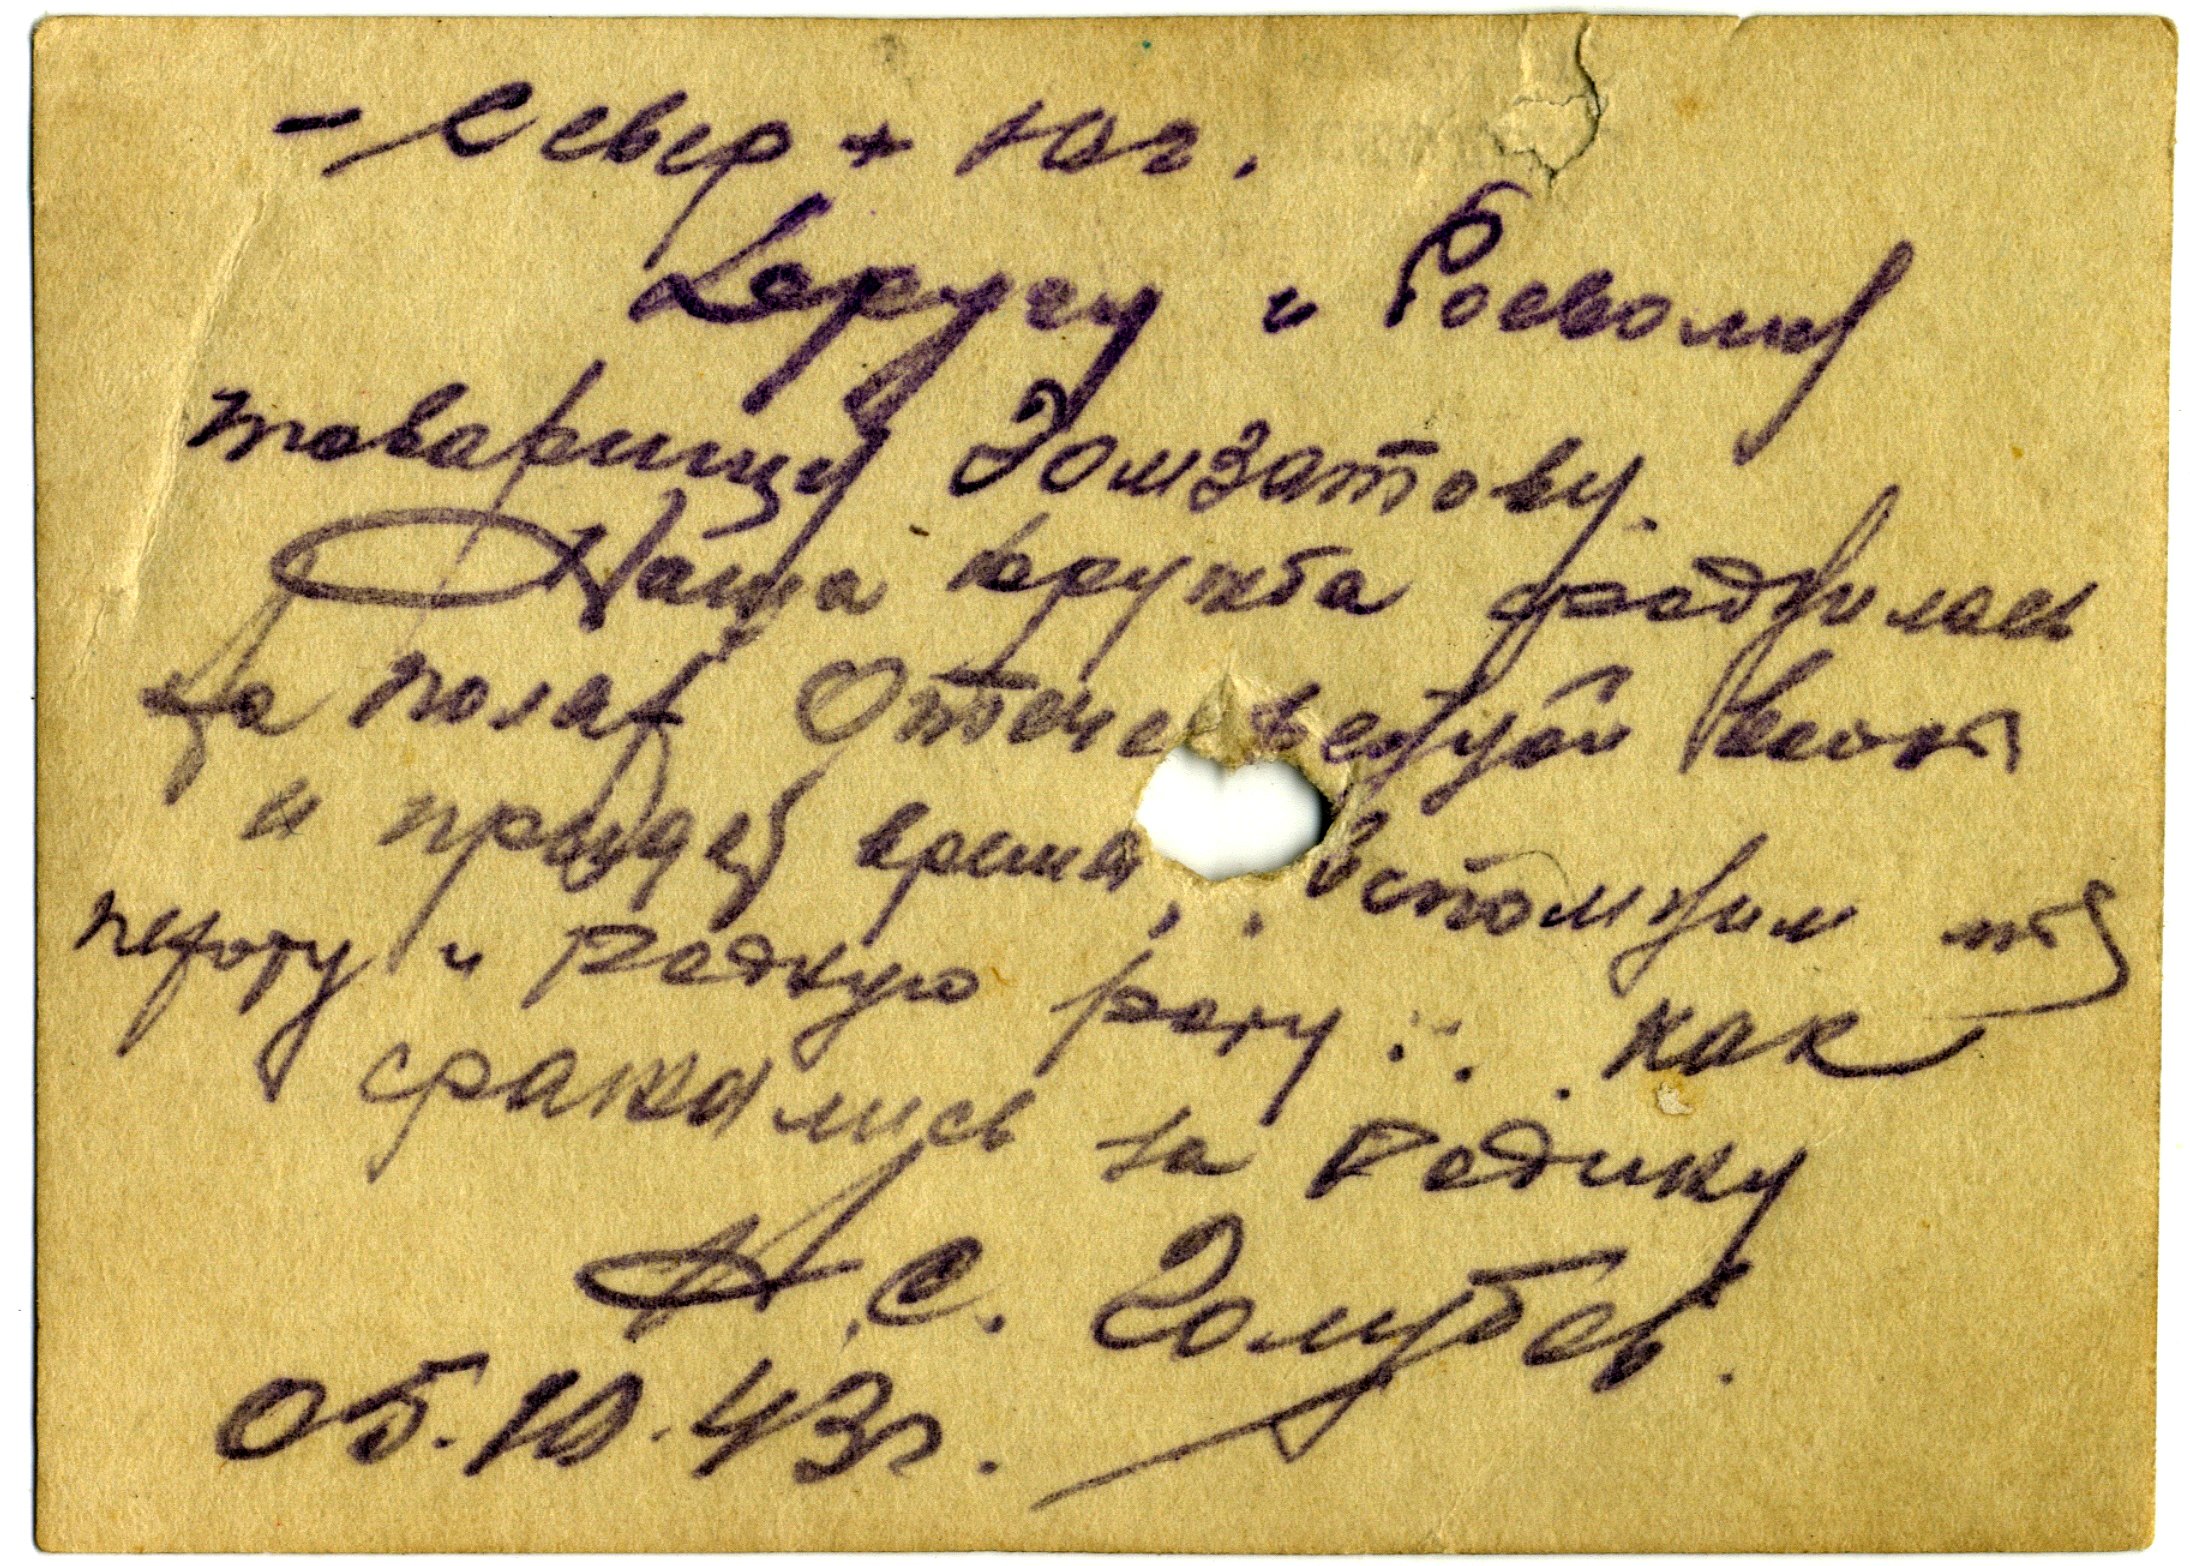 - Север + Юг.
Другу и боевому
товарищу Гомзатову.
Наша дружба сроднилась
на полях Отечественной войны
и придет время, вспомним
пехоту и родную роту ... как
сражались за Родину
Н. С. Голубев.
05.10.43г.